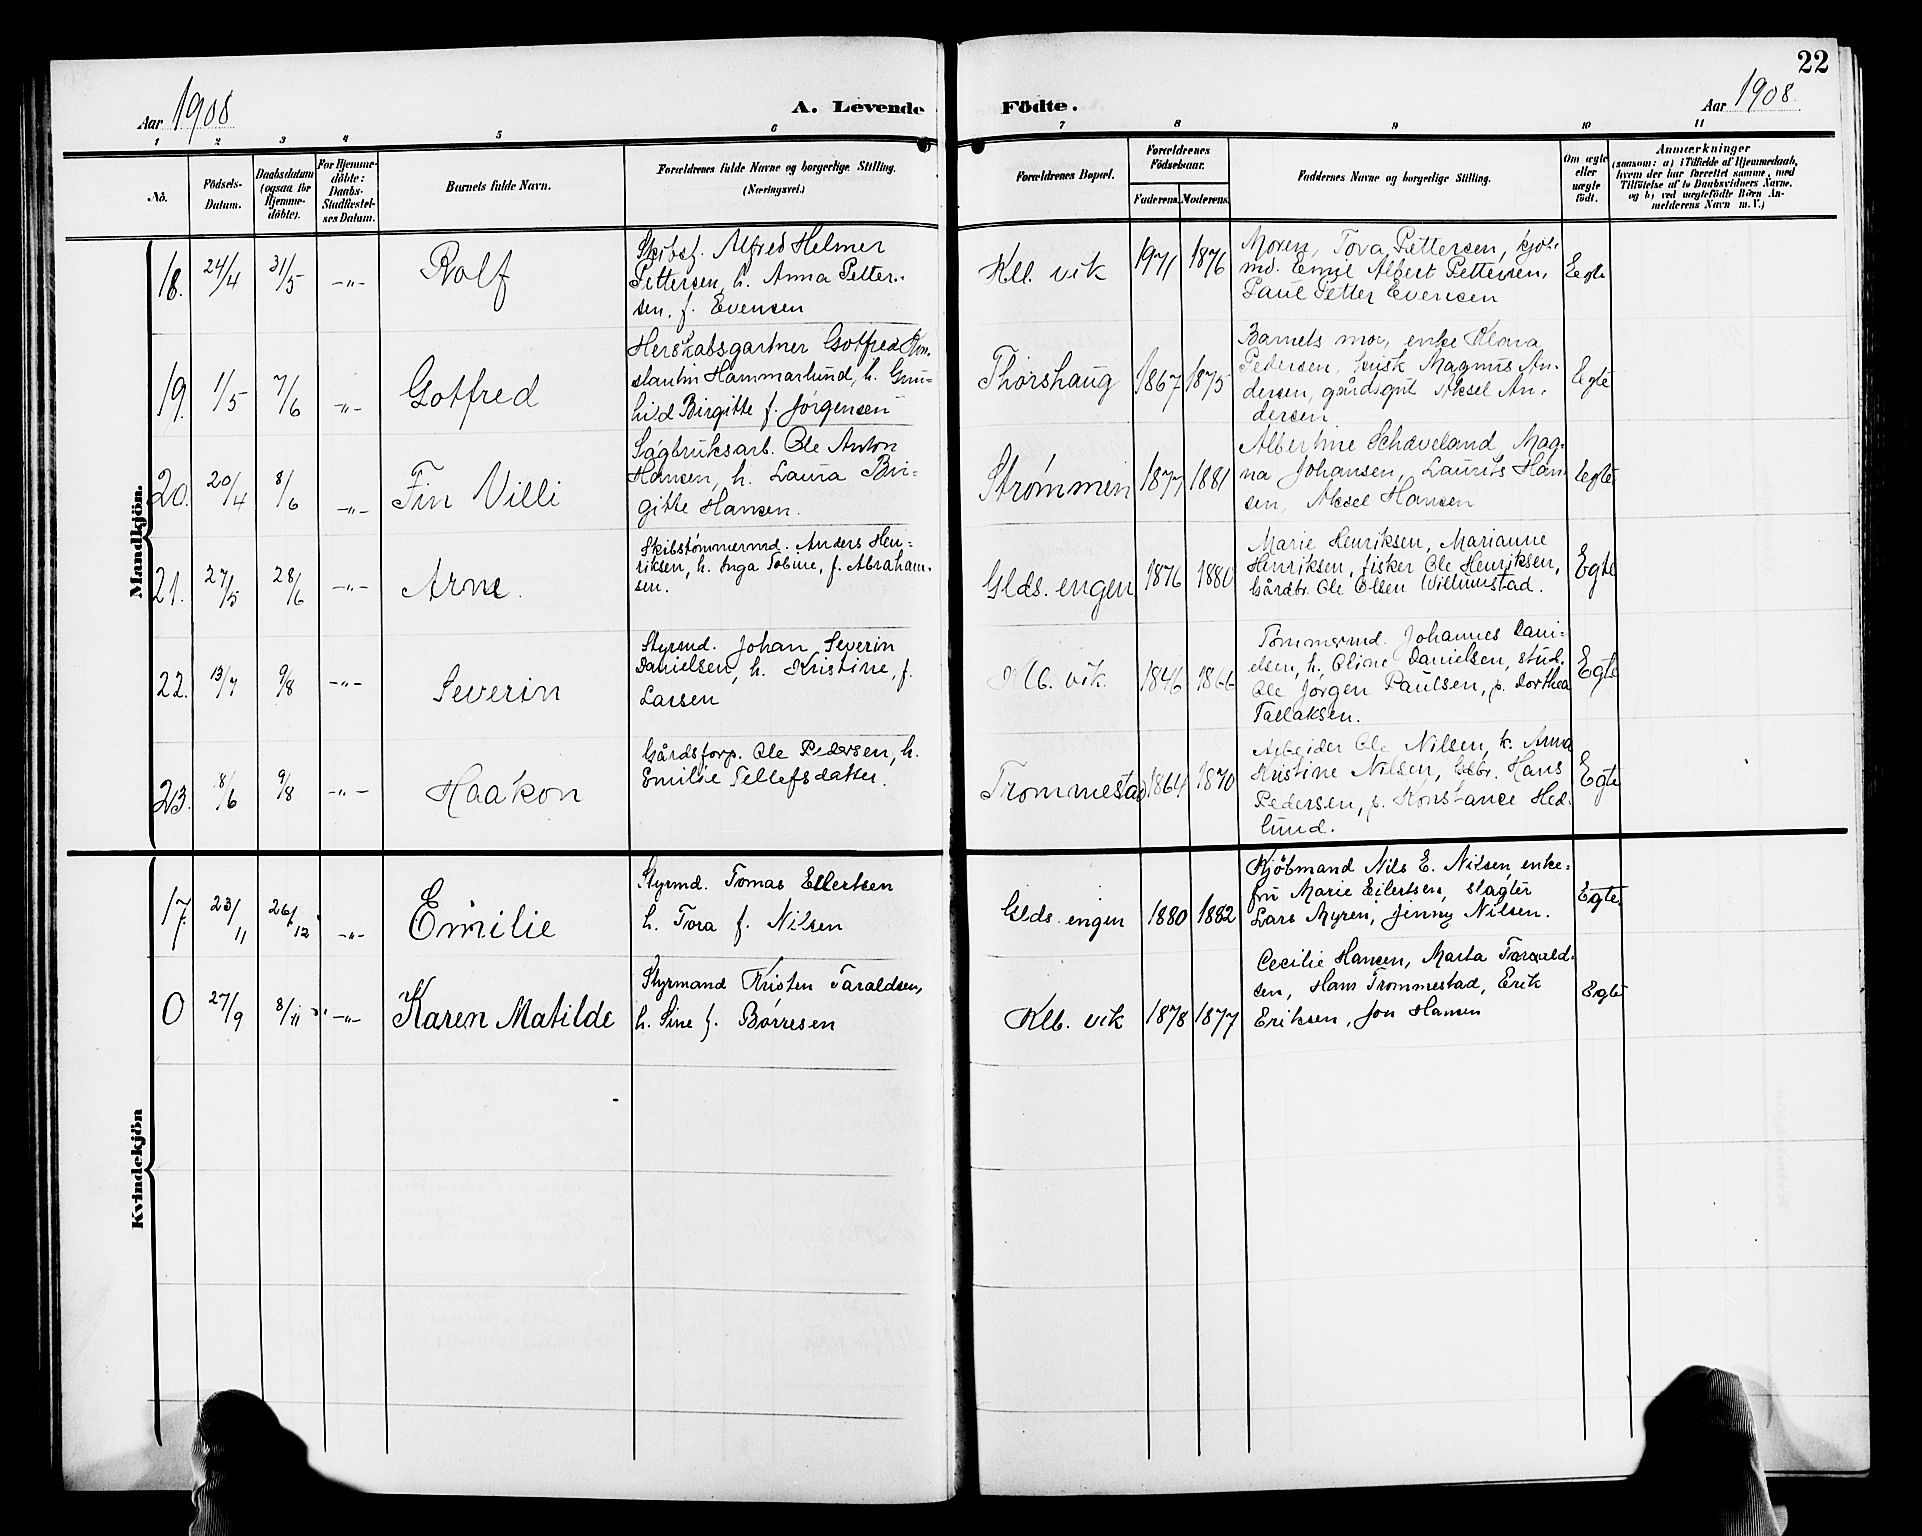 22
Aar 1908
A. Levende
Födte.
Aar 1908.
1 2 3 4 5 6 7 8 9 10 11
No.
Födsels-Datum.
Daabsdatum (ogsaa for Hjemmedöbte).
For Hjemmedöbte: Daabs-Stadfæstelses Datum.
Barnets fulde Navn.
Forældrenes fulde Navne og borgerlige Stilling.
(Næringsvei.)
Forældrenes Bopæl.
Forældrenes Födselsaar.
Faderens. Moderens.
Faddernes Navne og borgerlige Stilling.
Om ægte eller uægte födt.
Anmærkninger
(saasom: a) i Tilfælde af Hjemmedaab,
hvem der har forrettet samme, med
Tilföielse af to Daabsvidners Navne.
og b) ved uægtefödte Börn An-
melderens Navn m. V.)
Mandkjön.
18. 24/4 31/5 -„- Rolf
Skibsf. Alfred Helmer
Pettersen, h. Anna Petter-
sen. f. Evensen
Klb. vik 1971 1876
Moren, Tova Pettersen, kjøb-
md. Emil Albert Pettersen,
Paul Petter Evensen
Egte
19. 1/5 7/6 -„- Gotfred
Herskabsgartner Gotfred Kon-
stantin Hammarlund, h. Gun-
hild Birgitte f. Jørgensen
Thorshaug 1867 1875
Barnets mor, enke Klara
Pedersen, kusk Magnus An-
dersen, gårdsgut Aksel An-
dersen
Egte
20. 20/4 8/6 -„- Fin Villi
Sagbruksarb. Ole Anton
Hansen, h. Laura Bir-
gitte Hansen.
Strømmen 1877 1881
Albertine Schaveland, Mag-
na Johansen, Laurits Han-
sen, Aksel Hansen
Egte
21. 27/5 28/6 -„- Arne.
Skibstømmermd. Anders Hen-
riksen, h. Inga Tobine, f. Abraham-
sen.
Glds. engen 1876 1880
Marie Henriksen, Marianne
Henriksen, fisker Ole Henriksen,
Gårdbr. Ole Olsen Willumstad.
Egte
22. 13/7 9/8 -„- Severin
Styrmd. Johan Severin
Danielsen, h. Kristine, f.
Larsen
Klb. vik. 1846 1866
Tømmermd. Johannes Dani-
elsen, h. Oline Danielsen, stud.
Ole Jørgen Paulsen, p. Dorthea
Tallaksen.
Egte
23. 8/6 9/8 -„- Haakon
Gårdsforp. Ole Pedersen, h.
Emilie Tellefsdatter.
Trommestad 1864 1870
Arbeider Ole Nilsen, k. Anna
Kristine Nilsen, Gdbr. Hans
Pedersen, p. Konstance Hed-
lund.
Egte
Kvindekjön
17. 23/11 26/12 -„- Emilie
Styrmd. Tomas Ellertsen
h. Tora f. Nilsen
Glds. engen 1880 1882
Kjøbmand Nils E. Nilsen, enke-
fru Marie Eilertsen, slagter
Lars Myren, Jenny Nilsen.
Egte.
0 27/9 8/11 -„- Karen Matilde
Styrmand Kristen Taraldsen,
h. Sine f. Børresen
Klb. vik 1878 1877
Cecilie Hansen, Marta Tarald-
sen, Hans Trommestad, Erik
Eriksen, Jon Hansen
Egte